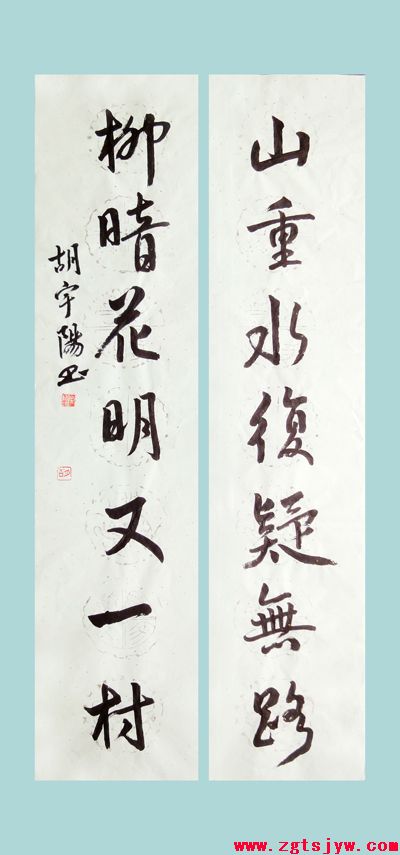 山重水復疑無路
柳暗花明又一村
胡宇陽书
www.zgtsjyw.com